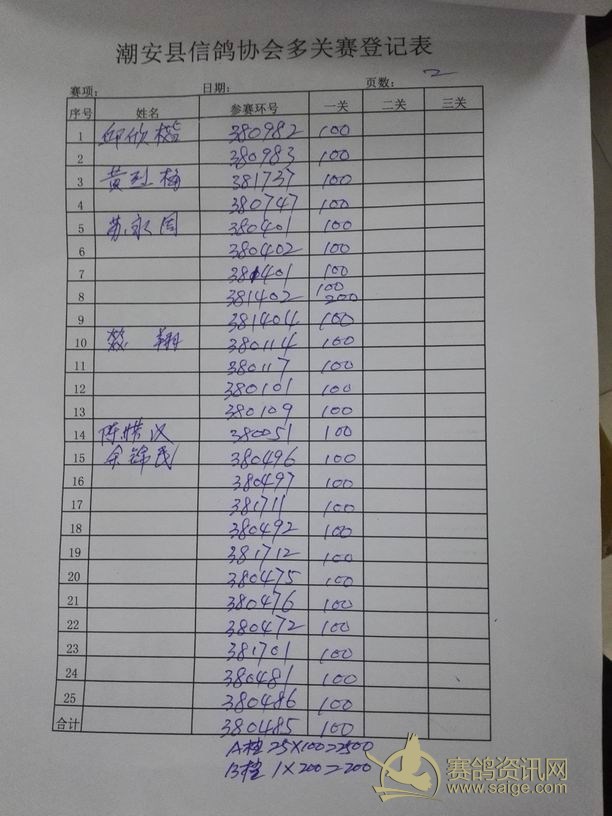 潮安县信鸽协会多关赛登记表
赛项： 日期： 页数： 2
序号 姓名 参赛环号 一关 二关 三关
1 邱欣楷 380982 100
2 380983 100
3 黄烈梅 381737 100
4 380747 100
5 苏永周 380401 100
6 380402 100
7 381401 100
8 381402 100 200
9 381404 100
10 翔 380114 100
11 380117 100
12 380101 100
13 380109 100
14 陈 汉 380051 100
15 余锦民 380496 100
16 380497 100
17 381711 100
18 380492 100
19 381712 100
20 380475 100
21 380476 100
22 380472 100
23 381701 100
24 380481 100
25 380486 100
合计 380485 100
A栏 25×100=2500
B栏 1×200=200
赛鸽资讯网
www.saige.com